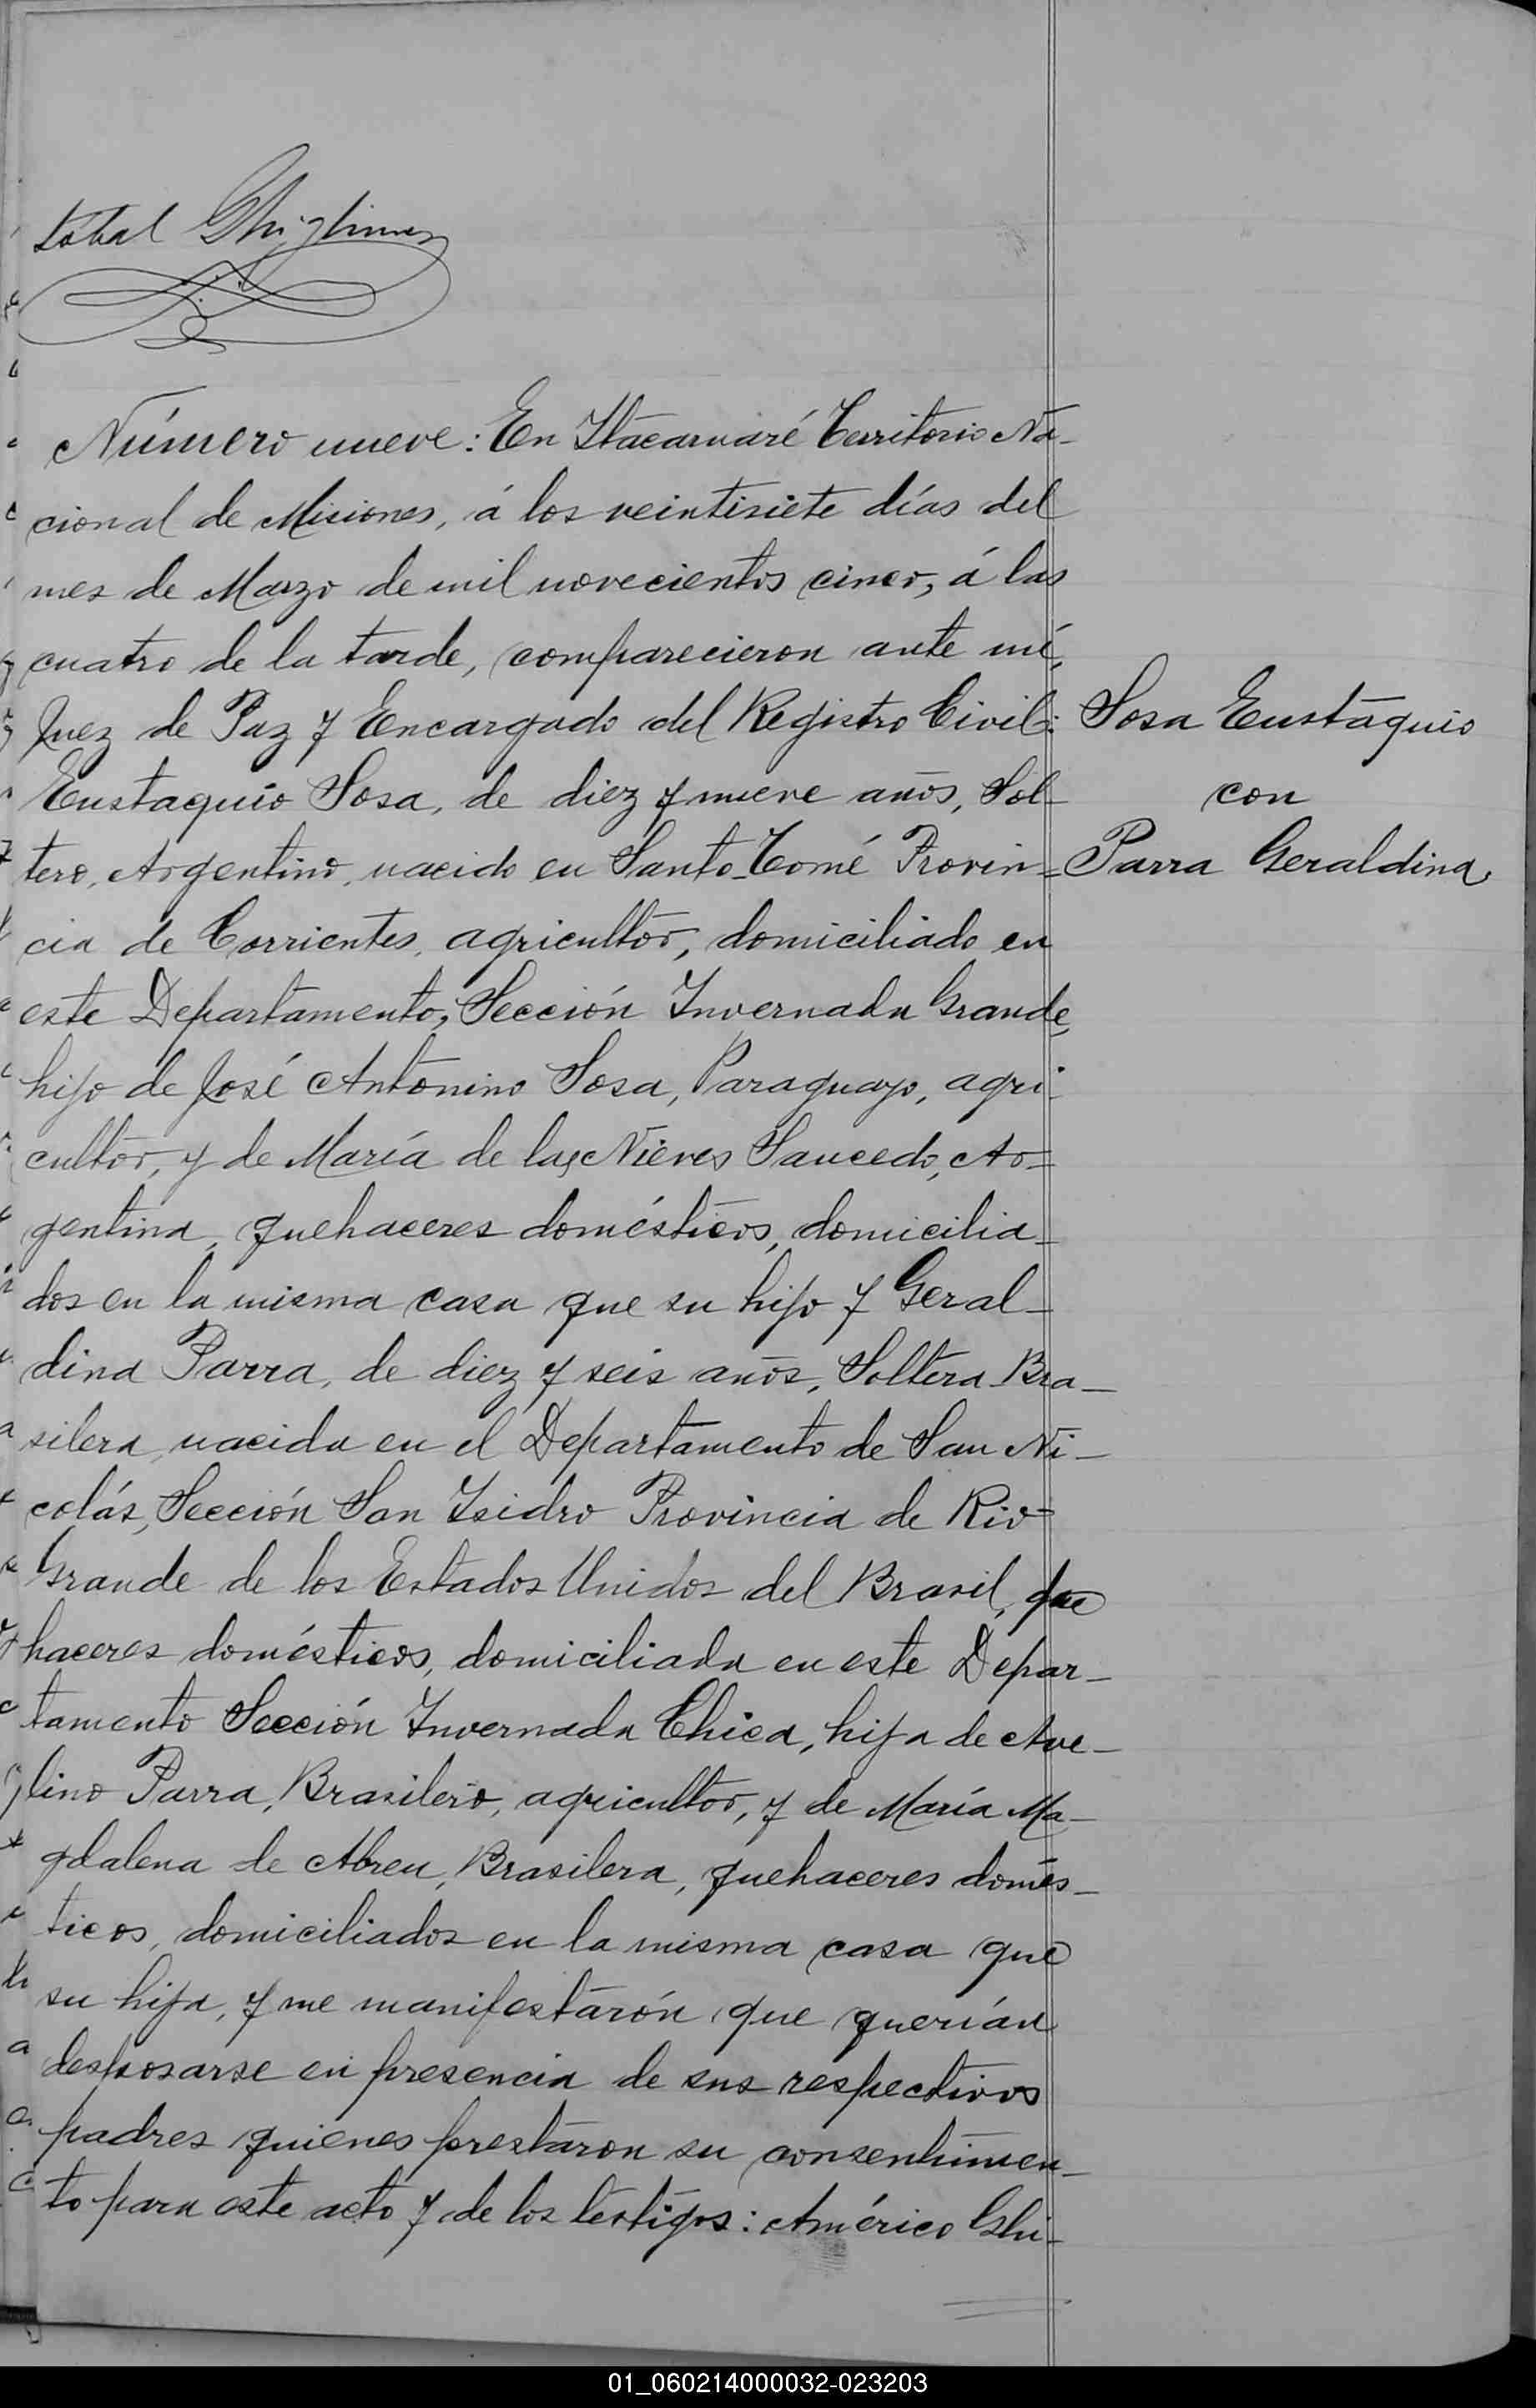 Número nueve: En Itacaruaré Territorio Na-
cional de Misiones, á los veintisiete días del
mes de Marzo de mil novecientos cinco, á las
cuatro de la tarde, comparecieron ante mí,
Juez de Paz y Encargado del Registro Civil:
Eustaquio Sosa, de diez y nueve años, Sol-
tero, Argentino, nacido en Santo Tomé Provin-
cia de Corrientes, agricultor, domiciliado en
este Departamento, Sección Invernada Grande,
hijo de José Antonino Sosa, Paraguayo, agri-
cultor, y de María de las Nieves Saucedo, Ar-
gentina, quehaceres domésticos, domicilia-
dos en la misma casa que su hijo y Geral-
dina Parra, de diez y seis años, Soltera Bra-
silera, nacida en el Departamento de San Ni-
colás, Sección San Isidro Provincia de Rio
Grande de los Estados Unidos del Brasil, que
haceres domésticos, domiciliada en este Depar-
tamento Sección Invernada Chica, hija de Ave-
lino Parra, Brasilero, agricultor, y de María Ma-
gdalena de Abreu, Brasilera, quehaceres domés-
ticos, domiciliados en la misma casa que
su hija, y me manifestarón que querían
desposarse en presencia de sus respectivos
padres quienes prestaron su consentimien-
to para este acto y de los testigos: Américo Ghi-
Sosa Eustaquio
con
Parra Geraldina
01_060214000032-023203